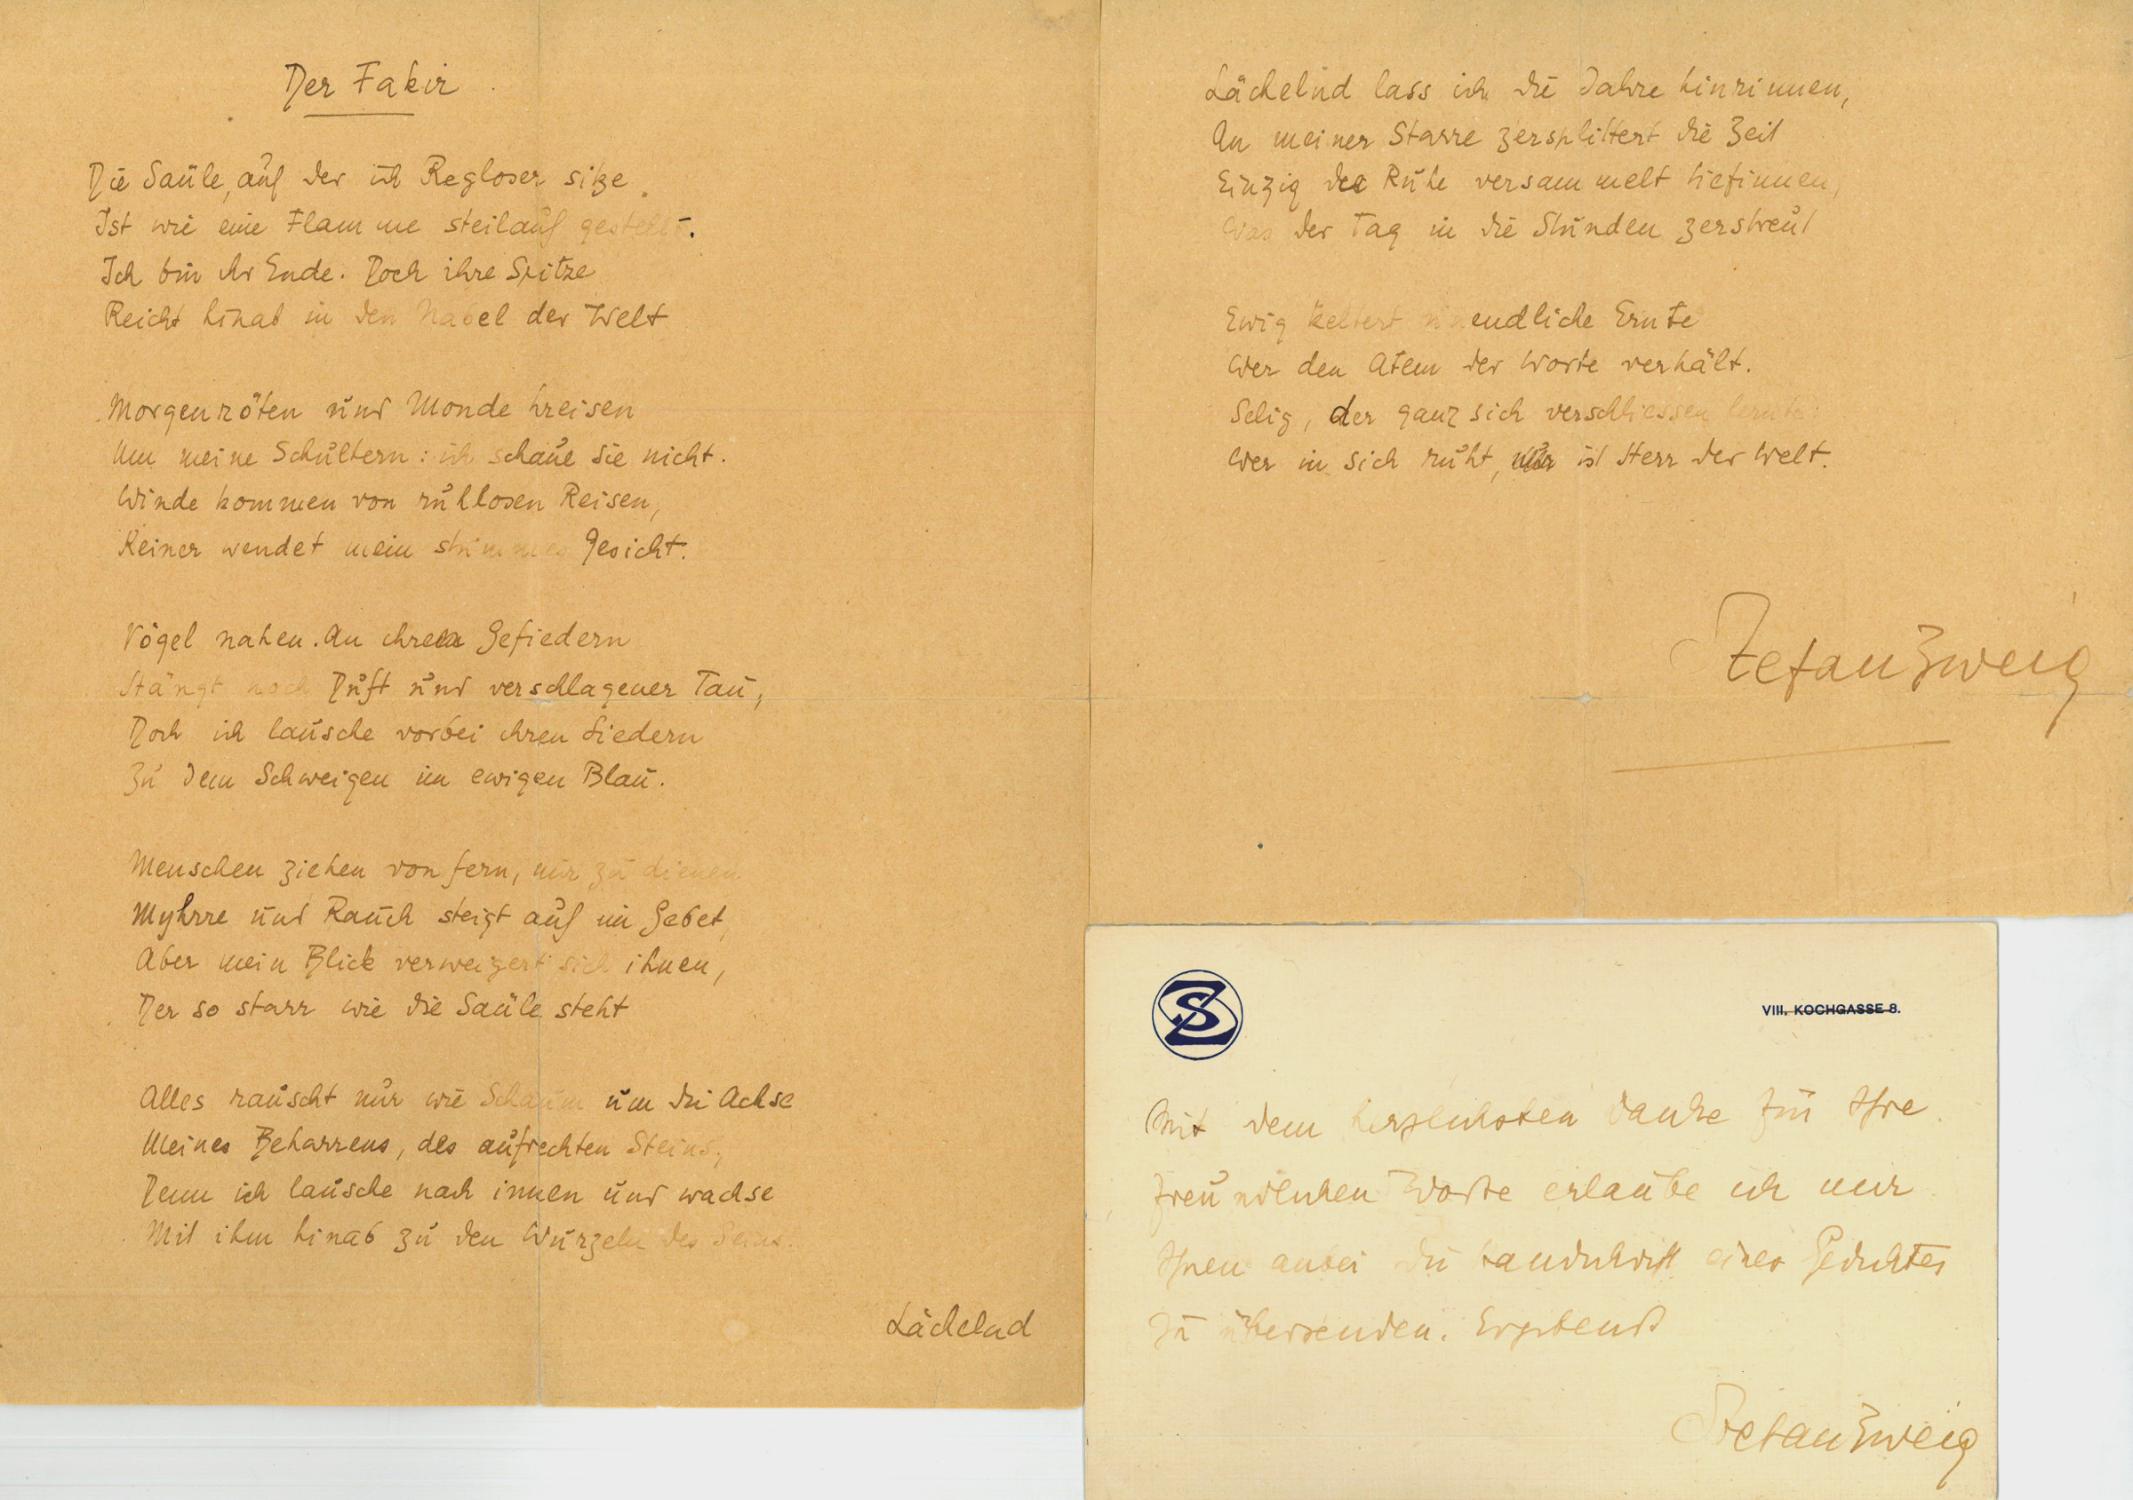 Der Fakir
Die Saüle, auf der ich Regloser sitze
Ist wie eine Flamme steilauf gestellt.
Ich bin ihr Ende. Doch ihre Spitze
Reicht hinab in den Nabel der Welt
Morgenröten und Monde kreisen
Um meine Schultern: ich schaue sie nicht.
Winde kommen von ruhlosen Reisen,
Keiner wendet mein stummes Gesicht.
Vögel nahen. An ihren Gefiedern
Hängt noch Duft und verschlagener Tau,
Doch ich lausche vorbei ihren Liedern
Zu dem Schweigen im ewigen Blau.
Menschen ziehen von fern, mir zu dienen
Myhrre und Rauch steigt auf im Gebet,
Aber mein Blick verweigert sich ihnen,
Der so starr wie die Saüle steht
Alles rauscht nur wie Schaum um die Achse
Meines Beharrens, des aufrechten Steins,
Denn ich lausche nach innen und wachse
Mit ihm hinab zu den Wurzeln des Seins.
Lächelnd
Lächelnd lass ich die Jahre hinrinnen,
An meiner Starre zersplittert die Zeit
Einzig der Ruhe versammelt tiefinnen,
Was der Tag in die Stunden zerstreut
Ewig keltert unendliche Ernte
Wer den Atem der Worte verhält.
Selig, der ganz sich verschliessen lernte:
Wer in sich ruht, ist Herr der Welt.
Stefan Zweig
SZ
VIII. KOCHGASSE 8.
Mit dem herzlichsten Danke für Ihre
freundlichen Worte erlaube ich mir
Ihnen anbei die Handschrift eines Gedichtes
zu übersenden. Ergebenst
Stefan Zweig